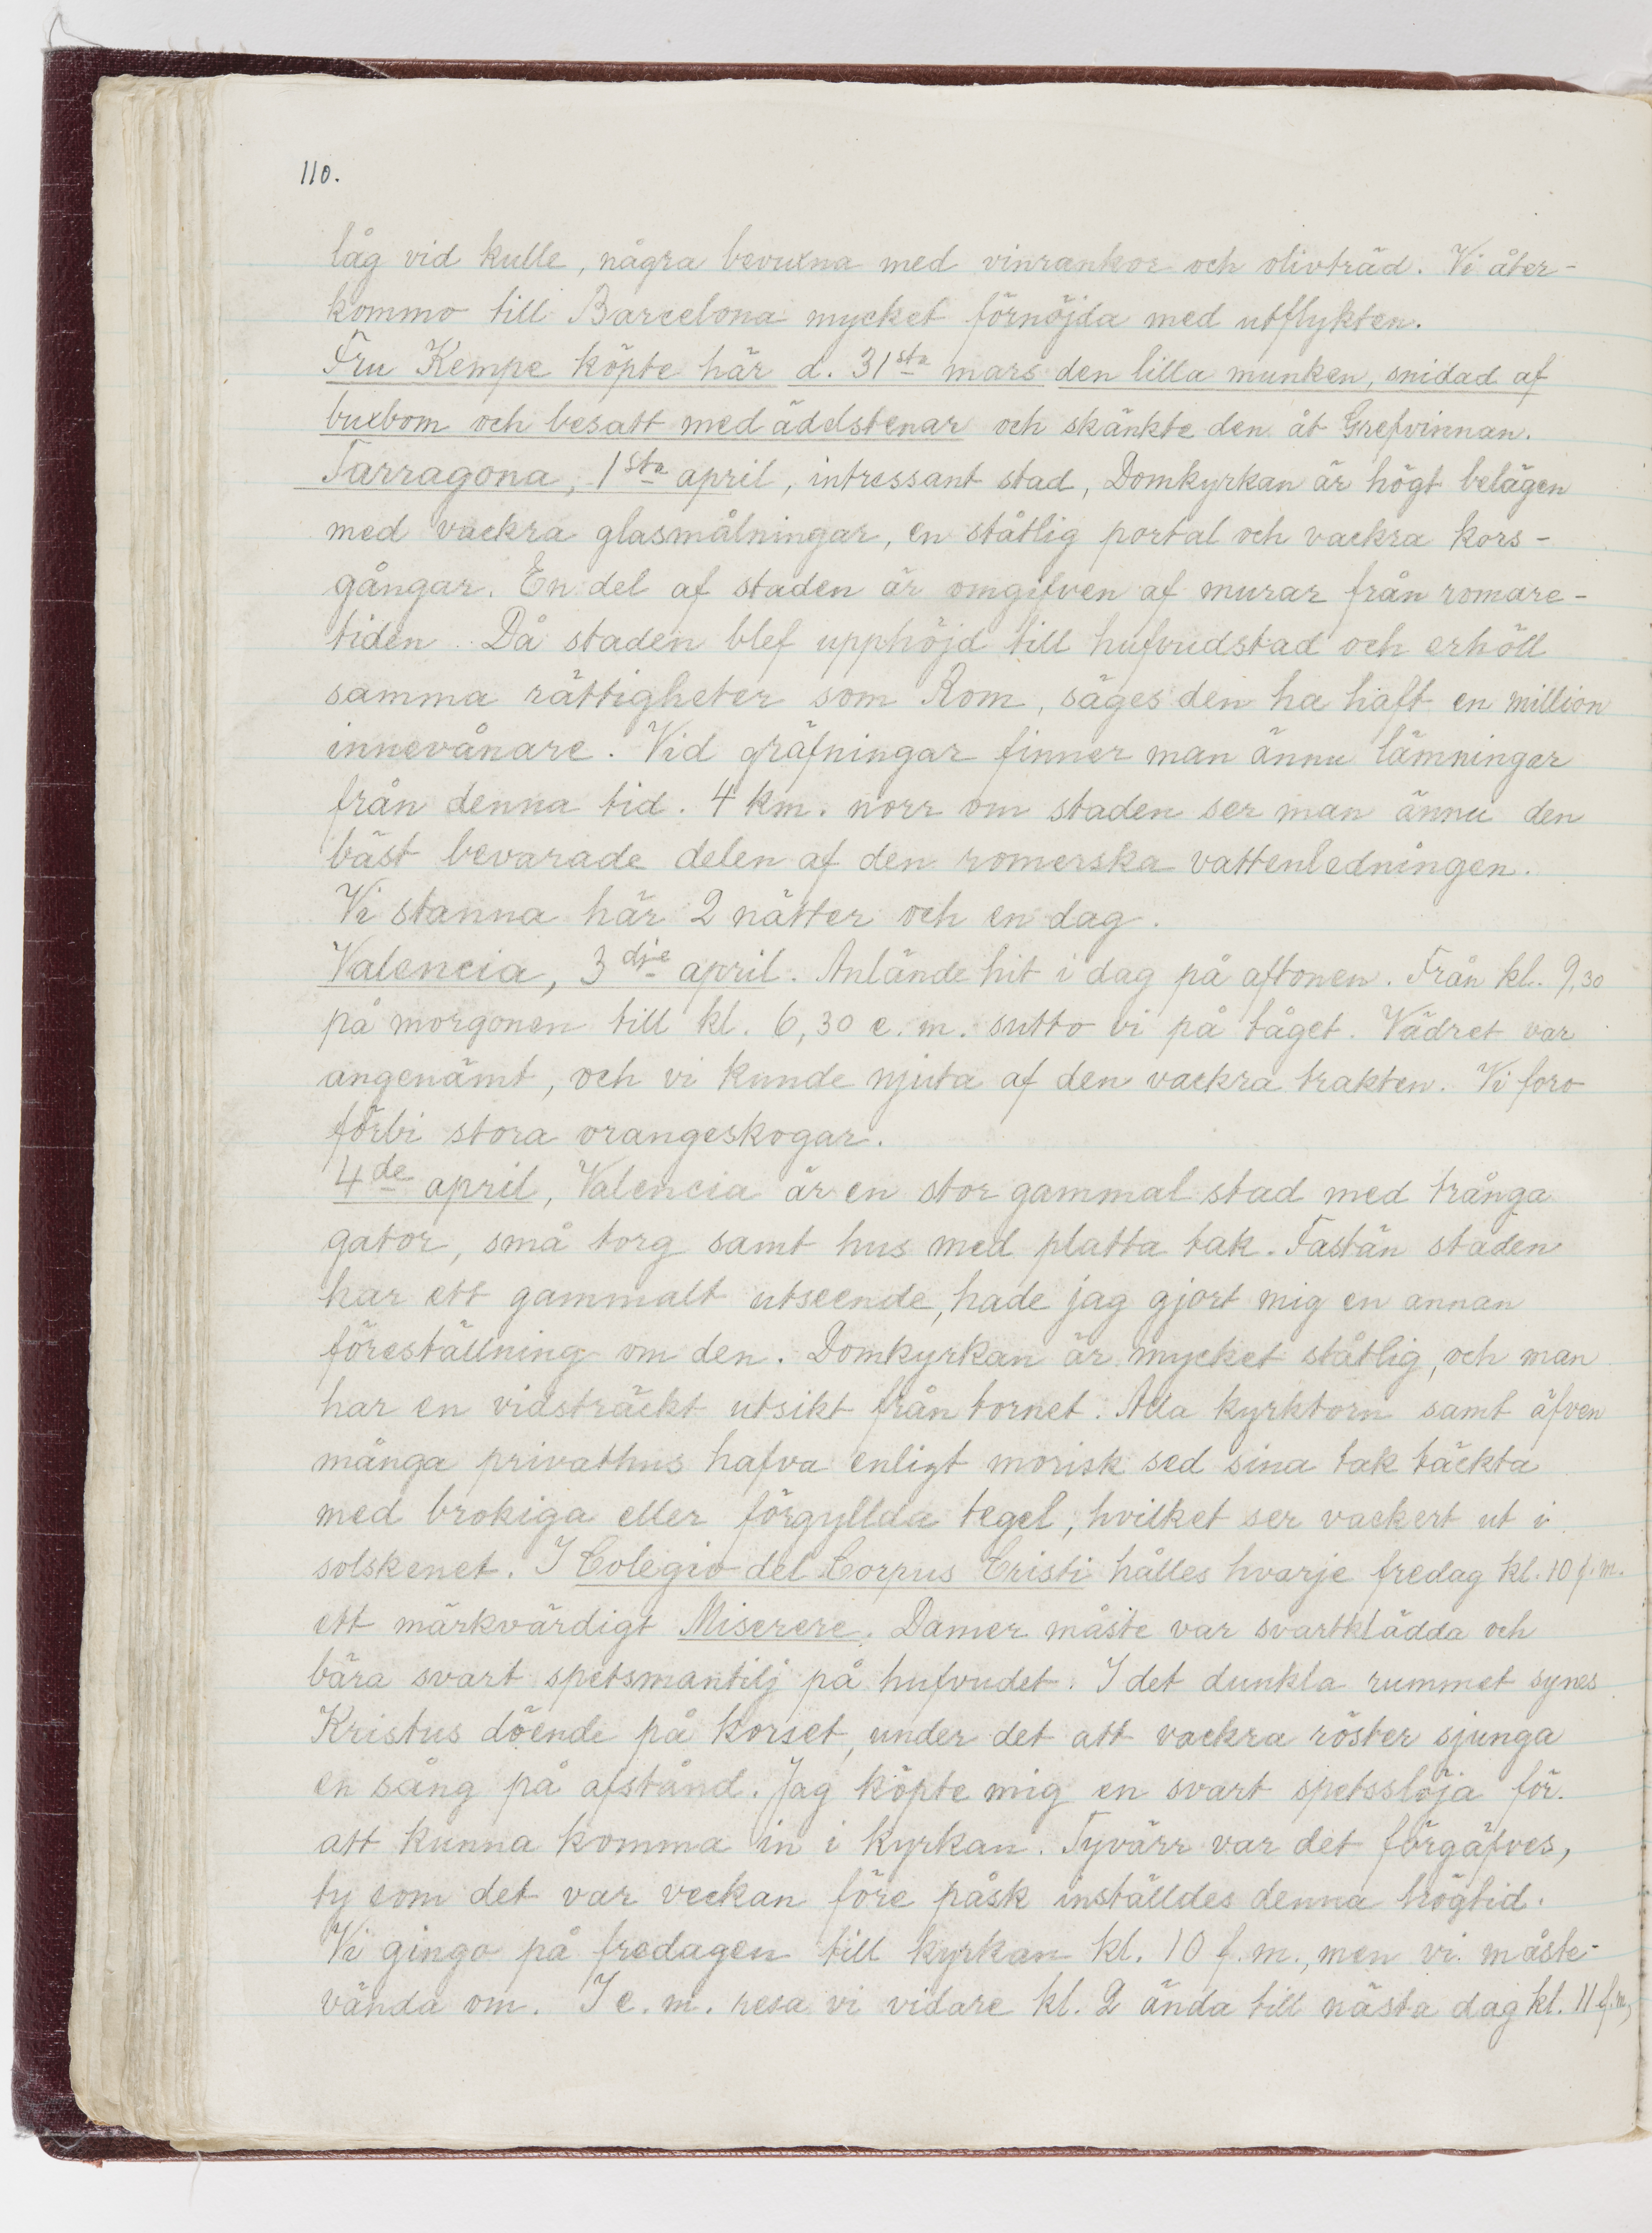 110.
låg vid kulle, några bevuxna med vinrankor och olivträd. Vi åter-
kommo till Barcelona mycket förnöjda med utflykten.
Fru Kempe köpte här d. 31sta mars den lilla munken, snidad af
buxbom och besatt med ädelstenar och skänkte den åt Grefvinnan.
Tarragona, 1sta april, intressant stad, Domkyrkan är högt belägen
med vackra glasmålningar, en ståtlig portal och vackra kors-
gångar. En del af staden är omgifven af murar från romare-
tiden. Då staden blef upphöjd till hufvudstad och erhöll
samma rättigheter som Rom, säges den ha haft en million
innevånare. Vid gräfningar finner man ännu lämningar
från denna tid. 4 km. norr om staden ser man ännu den
bäst bevarade delen af den romerska vattenledningen.
Vi stanna här 2 nätter och en dag.
Valencia, 3dje april. Anlände hit i dag på aftonen. Från kl. 9,30
på morgonen till kl. 6,30 e.m. sutto vi på tåget. Vädret var
angenämt, och vi kunde njuta af den vackra trakten. Vi foro
förbi stora orangeskogar.
4de april, Valencia är en stor gammal stad med trånga
gator, små torg samt hus med platta tak. Fastän staden
har ett gammalt utseende, hade jag gjort mig en annan
föreställning om den. Domkyrkan är mycket ståtlig, och man
har en vidsträckt utsikt från tornet. Alla kyrktorn samt äfven
många privathus hafva enligt morisk sed sina tak täckta
med brokiga eller förgyllda tegel, hvilket ser vackert ut i
solskenet. I Colegio del Corpus Cristi hålles hvarje fredag kl. 10 f.m.
ett märkvärdigt Miserere. Damer måste var svartklädda och
bära svart spetsmantilj på hufvudet. I det dunkla rummet synes
Kristus döende på korset, under det att vackra röster sjunga
en sång på afstånd. Jag köpte mig en svart spetsslöja för
att kunna komma in i kyrkan. Tyvärr var det förgäfves,
ty som det var veckan före påsk inställdes denna högtid.
Vi gingo på fredagen till kyrkan kl. 10 f.m., men vi måste
vända om. I e.m. resa vi vidare kl. 2 ända till nästa dag kl. 11 f.m,